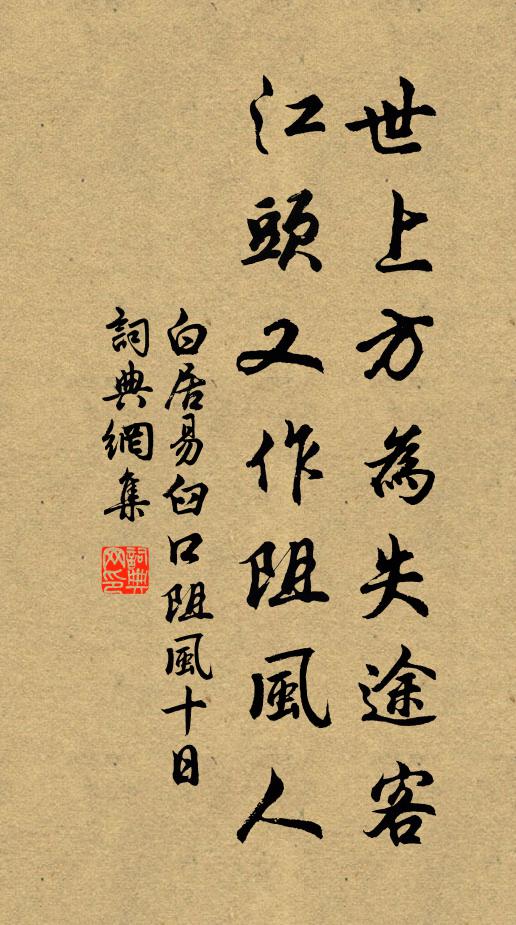 世上方為失途客
江頭又作阻風人
白居易臼口阻風十日
詞典網集
詞典網印